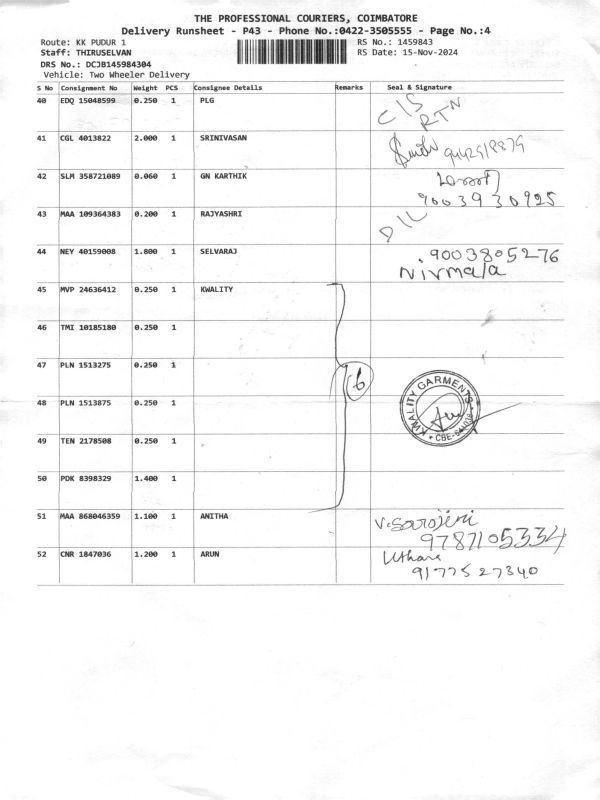 THE PROFESSIONAL COURIERS, COIMBATORE
Delivery Runsheet - P43 - Phone No.:0422-3505555 - Page No.:4
Route: KK PUDUR 1 RS No.: 1459843
Staff: THIRUSELVAN RS Date: 15-Nov-2024
DRS No.: DCJB145984304
Vehicle: Two Wheeler Delivery
S No Consignment No Weight PCS Consignee Details Remarks Seal & Signature
40 EDQ 15048599 0.250 1 PLG C/S
RTN
41 CGL 4013822 2.000 1 SRINIVASAN
42 SLM 358721089 0.060 1 GN KARTHIK
9003930925
43 MAA 109364383 0.200 1 RAJYASHRI D/L
44 NEY 40159008 1.800 1 SELVARAJ .9003805276
Nirmala
45 MVP 24636412 0.250 1 KWALITY
46 TMI 10185180 0.250 1
47 PLN 1513275 0.250 1 6
48 PLN 1513875 0.250 1 KWALITY GARMENTS
49 TEN 2178508 0.250 1
50 PDK 8398329 1.400 1
51 MAA 868046359 1.100 1 ANITHA V. Sarojini
9787105334
52 CNR 1847036 1.200 1 ARUN Uthara
9177527340